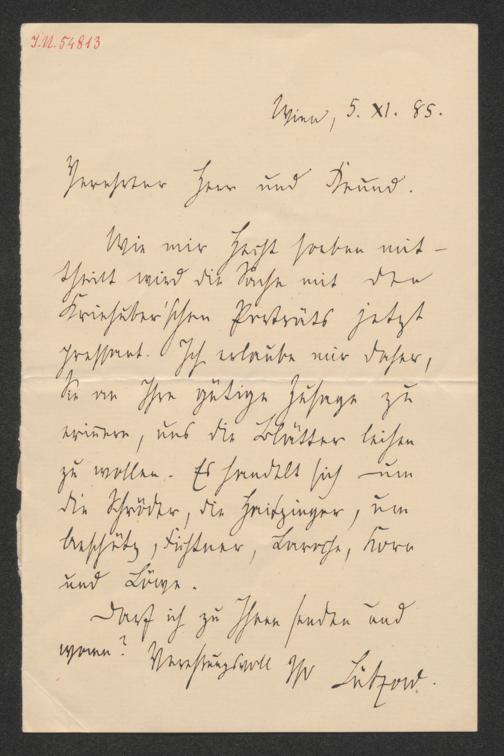 J.N. 54813
Wien, 5. XI. 85.
Verehrter Herr und Freund.
Wie mir Hecht soeben mit-
theilt wird die Sache mit den
Kriehuber'schen Porträts jetzt
pressant. Ich erlaube mir daher,
Sie an Ihre gütige Zusage zu
erinnern, uns die Blätter leihen
zu wollen. Es handelt sich um
die Schröder, die Haizinger, um
Fichtner, Laroche, Korn
und Löwe.
Darf ich zu Ihnen senden und
wann? Verehrungsvoll Ihr Lützow.